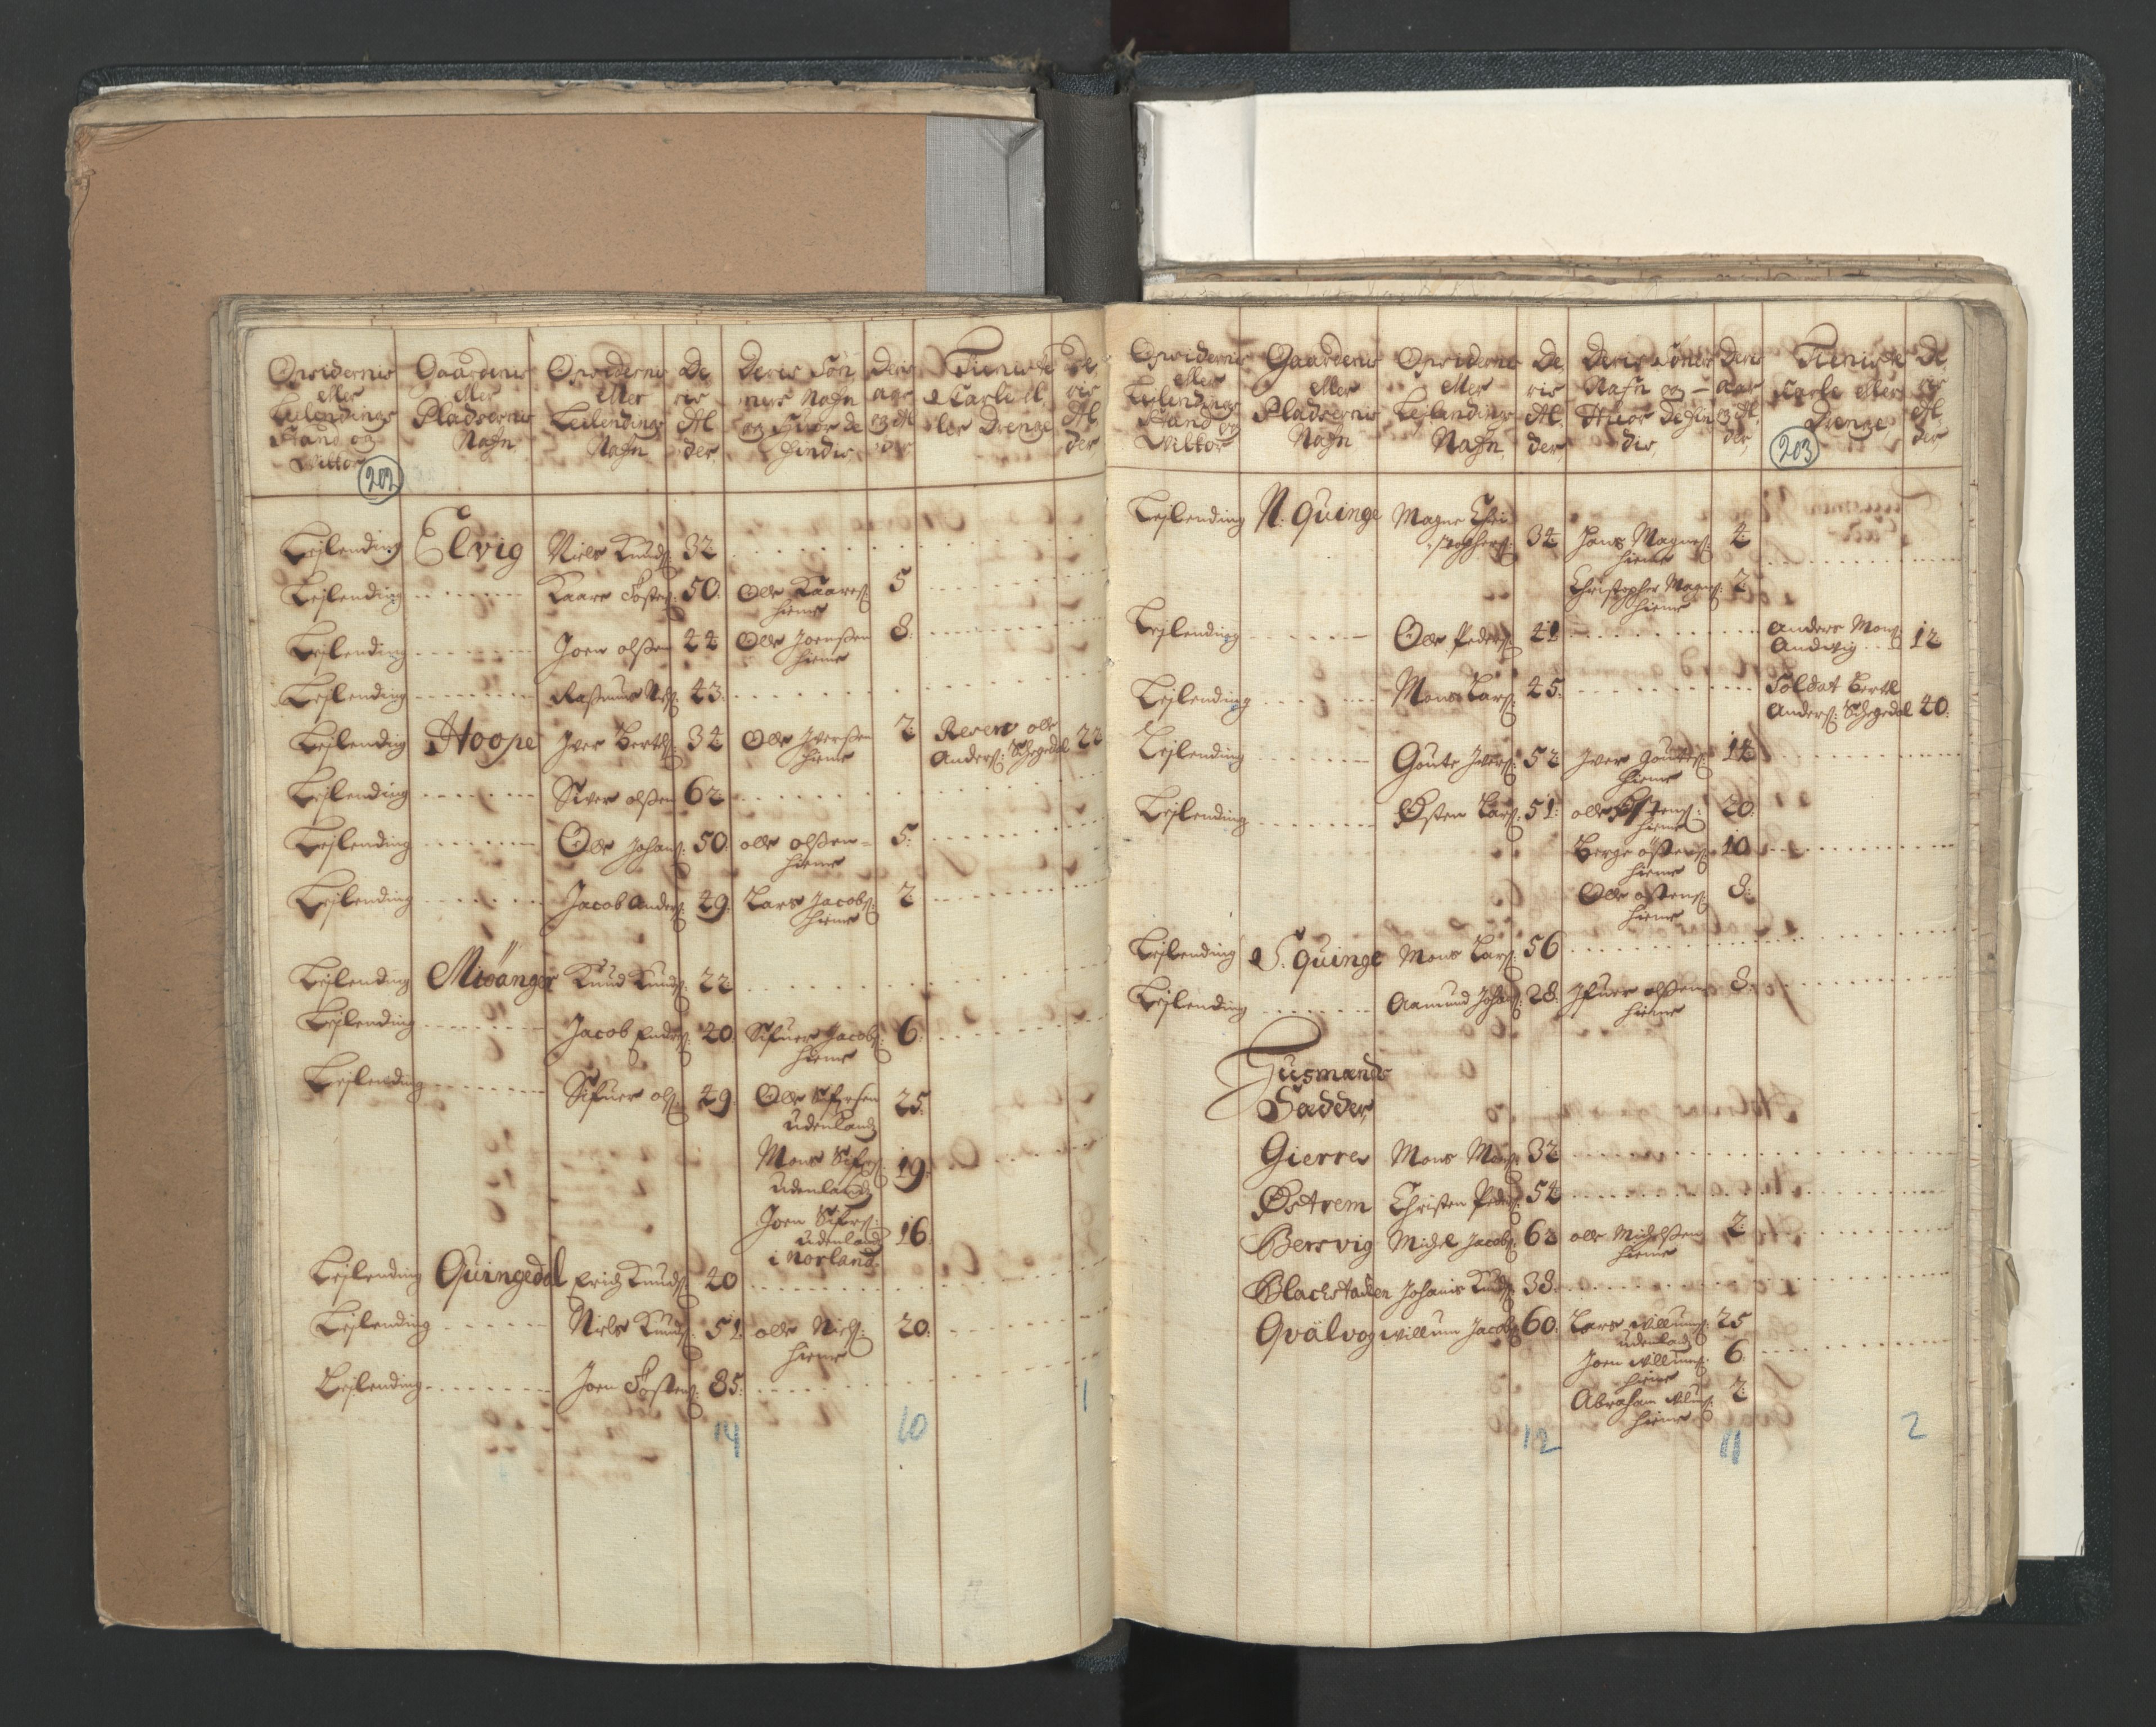 Opsidernis eller Leilendings Stand og Vilkor
Gaardenis eller Pladsernis Nafn
Opsidernis eller Leilendings Nafn
De ris Al der
Deris Søn ners Nafn og Huor de findis
Deris aar og Al der
Tieniste Carle el ler Drenge
De ris Al der
202
Lejlending Elvig Niels Knuds: 32
Lejlending Kaare Tostens: 50 Olle Kaares: hieme 5
Lejlending Joen olsßen 44 Olle Joensßen hieme 8
Lejlending Rasmus Nels: 43
Lejlending Hoope Iver Bertels: 34 Olle Iversßen hieme 2 Reserv olle Anders: 22
Lejlending Siver olsßen 62
Lejlending Olle Johans: 50 olle olsßen hieme 5
Lejlending Jacob Anders: 49 Lars Jacobs: hieme 2
Lejlending Miöanger Knud Knuds: 22
Lejlending Jacob Enders: 40 Sifuer Jacobs: hieme 6
Lejlending Sifuer ols: 49 Olle Sifersen udenlands 25
Mons Sifers: udenlands 19
Joen Sifers: udenlands i Norland 16
Lejlending Quingedal Erich Knuds: 40
Lejlending Niels Knuds: 51 olle Niels: hieme 20
Lejlending Joen Tostens: 85
14 10 1
Opsidernis eller Lejlendings Stand og Vilkor
Gaardenis eller Pladsernis Nafn
Opsidernis eller Lejlendings Nafn
De ris Al der
Deris Søners Nafn og Huor de fin dis
Deris aar og Al der
Tieniste Carle eller Drenge
De ris Al der
203
Lejlending N. Quinge Magne Chri stophers: 34 Hans Magnes: hieme 4
Christopher Magnes: hieme 2
Lejlending Olle Peders: 41 Anders Mons: Andvig 12
Lejlending Mons Lars: 45 Soldat Bertel Anders: 40
Lejlending Goute Ivers: 52 Iver Goutes: hieme 14
Lejlending Østen Lars: 51 olle Østens: hieme 20
Berge östens: hieme 10
Olle östens: hieme 8
Lejlending S. Quinge Mons Lars: 56
Lejlending Aamund Johans: 28 Ifuer olsßen hieme 8
Husmands Sædder
Gierre Mons Mons: 32
Østrem Christen Peders: 54
Bersvig Michel Jacobs: 62 olle Michelsßen hieme 2
Blachstadden Johanis Knuds: 38
Qvälvog Willum Jacobs: 60 Lars Willums: udenlands 25
Joen Willums: hieme 6
Abraham Willums: hieme 2
12 11 2